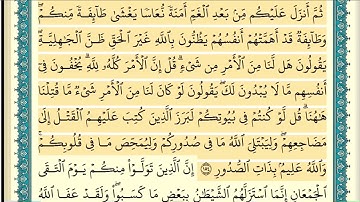 ثُمَّ أَنزَلَ عَلَيْكُم مِّنۢ بَعْدِ ٱلْغَمِّ أَمَنَةً نُّعَاسًا يَغْشَىٰ طَآئِفَةً مِّنكُمْ ۖ
وَطَآئِفَةٌ قَدْ أَهَمَّتْهُمْ أَنفُسُهُمْ يَظُنُّونَ بِٱللَّهِ غَيْرَ ٱلْحَقِّ ظَنَّ ٱلْجَٰهِلِيَّةِ ۖ
يَقُولُونَ هَل لَّنَا مِنَ ٱلْأَمْرِ مِن شَىْءٍ ۗ قُلْ إِنَّ ٱلْأَمْرَ كُلَّهُۥ لِلَّهِ ۗ يُخْفُونَ فِىٓ
أَنفُسِهِم مَّا لَا يُبْدُونَ لَكَ ۖ يَقُولُونَ لَوْ كَانَ لَنَا مِنَ ٱلْأَمْرِ شَىْءٌ مَّا قُتِلْنَا
هَٰهُنَا ۗ قُل لَّوْ كُنتُمْ فِى بُيُوتِكُمْ لَبَرَزَ ٱلَّذِينَ كُتِبَ عَلَيْهِمُ ٱلْقَتْلُ إِلَىٰ
مَضَاجِعِهِمْ ۖ وَلِيَبْتَلِىَ ٱللَّهُ مَا فِى صُدُورِكُمْ وَلِيُمَحِّصَ مَا فِى قُلُوبِكُمْ ۗ
وَٱللَّهُ عَلِيمٌۢ بِذَاتِ ٱلصُّدُورِ ١٥٤ إِنَّ ٱلَّذِينَ تَوَلَّوْا۟ مِنكُمْ يَوْمَ ٱلْتَقَى
ٱلْجَمْعَانِ إِنَّمَا ٱسْتَزَلَّهُمُ ٱلشَّيْطَٰنُ بِبَعْضِ مَا كَسَبُوا۟ ۖ وَلَقَدْ عَفَا ٱللَّهُ